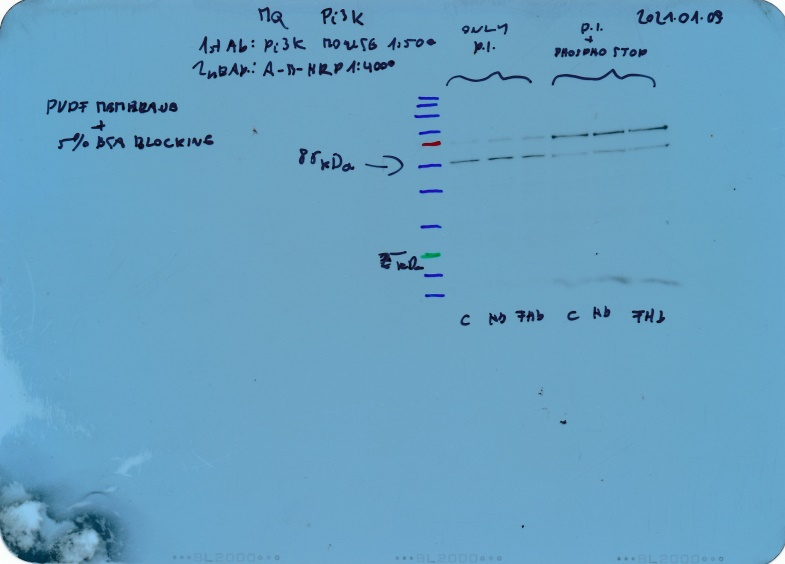 MQ Pi3K
2021.01.09
1st Ab: Pi3K MOUSE 1:500
2nd Ab: A-M-HRP 1:4000
ONLY
P.I.
P.I.
+
PHOSPHO STOP
PVDF MEMBRANE
+
5% BSA BLOCKING
85 kDa
kDa
C Hb FHb C Hb FHb
SL2000 SL2000 SL2000